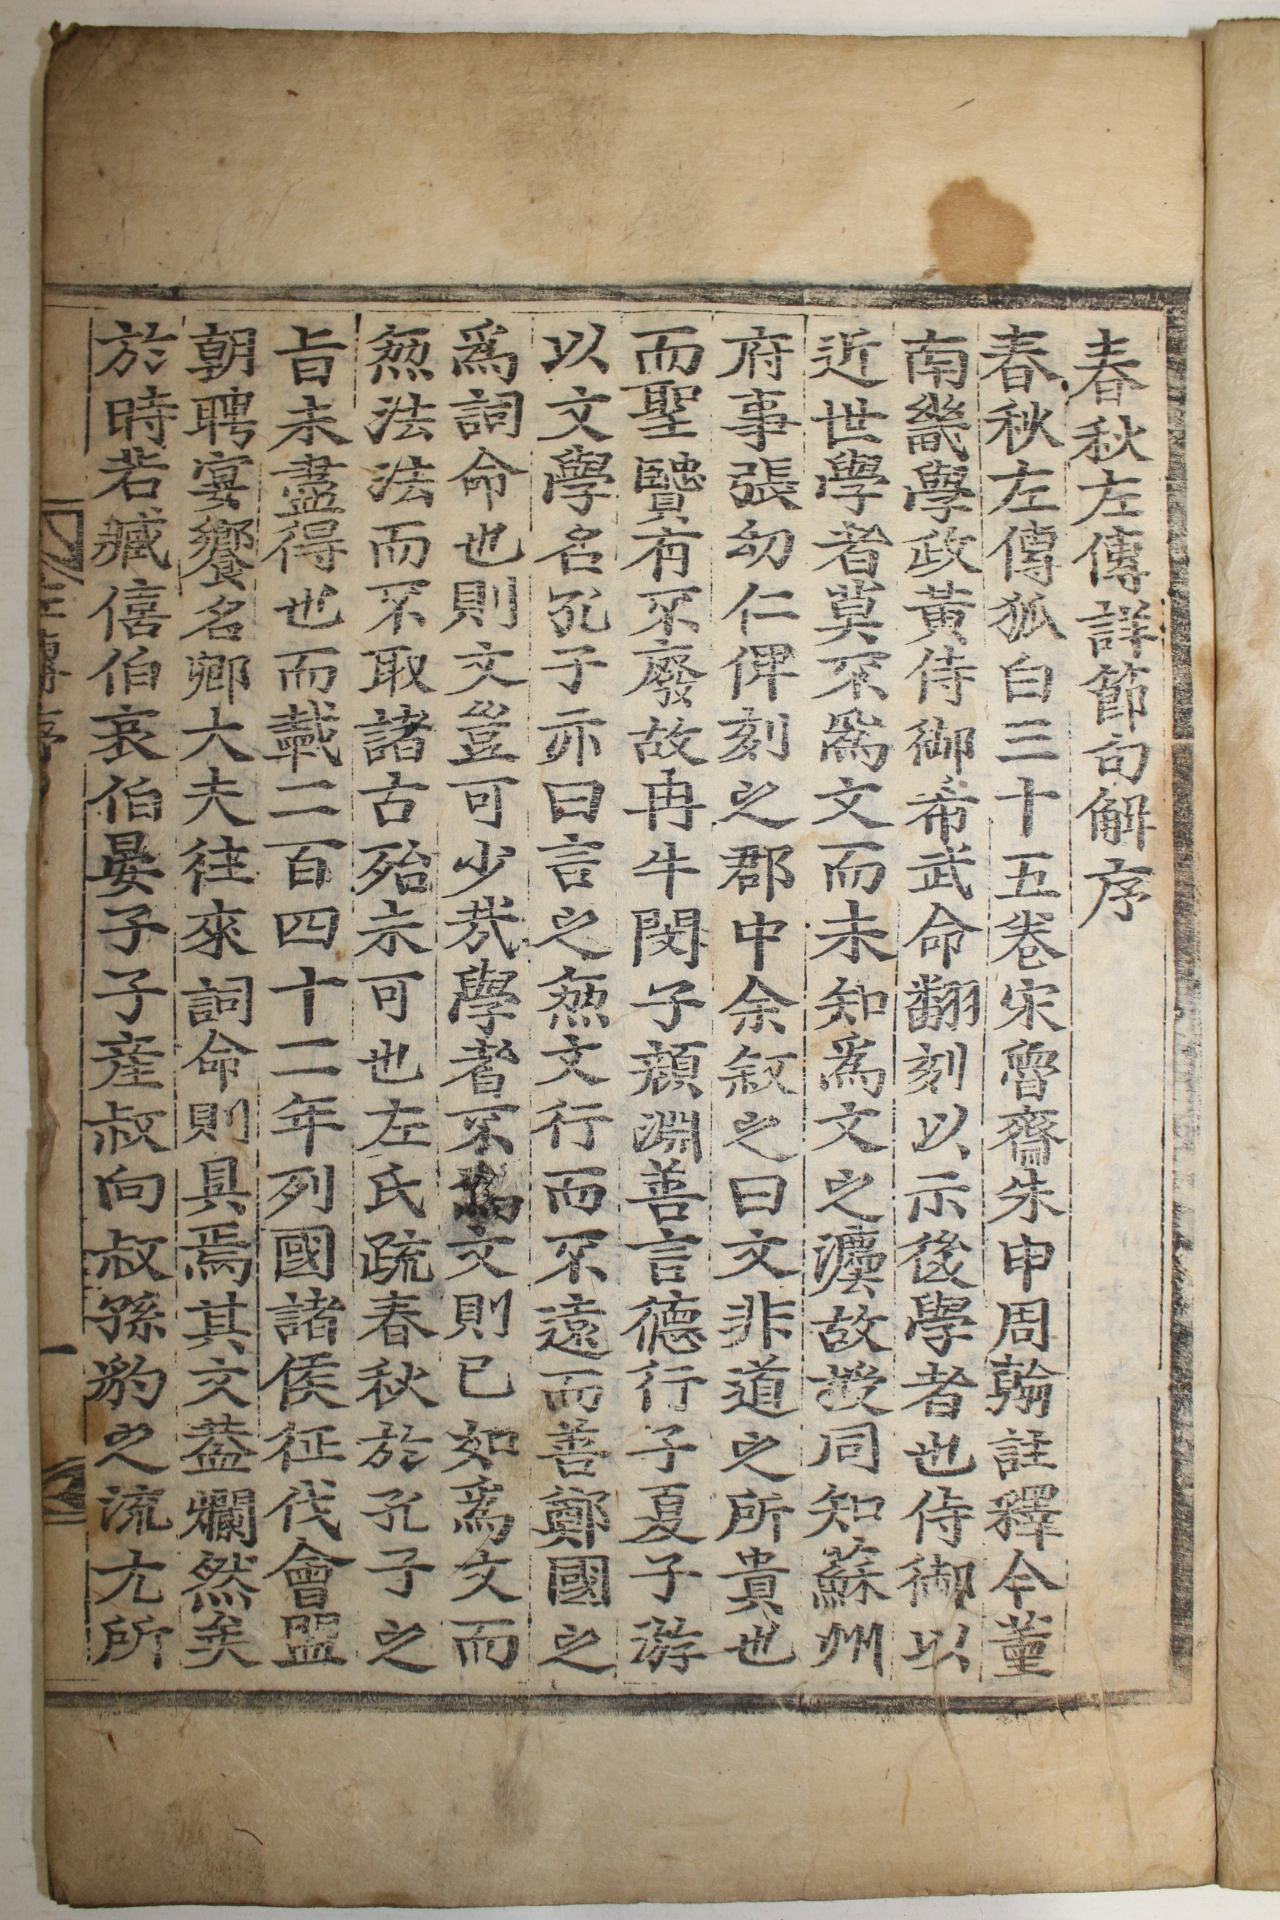 春秋左傳詳節句解序
春秋左傳狐白三十五卷宋魯齋朱申周翰註釋今董
南畿學政黃侍御希武命翻刻以示後學者也侍御以
近世學者莫不爲文而未知爲文之瀍故授同知蘇州
府事張幼仁俾刻之郡中余叙之曰文非道之所貴也
而聖賢有不廢故冉牛閔子顔淵善言德行子夏子游
以文學名孔子亦曰言之無文行而不遠而善鄭國之
爲詞命也則文豈可少哉學者不爲文則已如爲文而
無法法而不取諸古殆未可也左氏疏春秋於孔子之
旨未盡得也而載二百四十二年列國諸侯征伐會盟
朝聘宴饗名卿大夫往來詞命則具焉其文蓋爛然矣
於時若臧僖伯哀伯晏子子産叔向叔孫豹之流尤所
左傳序
一